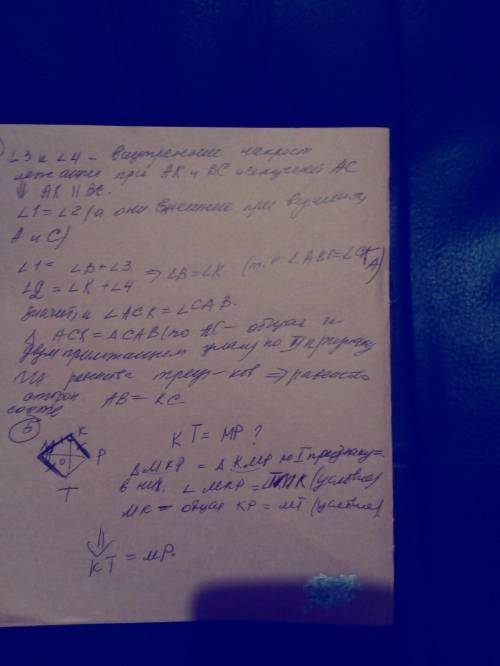 ∠3 и ∠4 - внутренние накрест
лежащие при AK и BC и секущей AC
⇓ AK || BC.
∠1 = ∠2 (а они внешние при вершинах
A и C)
∠1 = ∠B + ∠3
∠2 = ∠K + ∠4 ⇒ ∠B = ∠K (т.к ∠ABC = ∠CKA)
значит, и ∠ACK = ∠CAB.
Δ ACK = ΔCAB (по AC - общая и
двум прилежащим углам) по II признаку
Из равенства треуг-ков ⇒ равенство
сторон AB = KC
5
M K
O P
T
KT = MP ?
ΔMKP = ΔKMP по I признаку =
в них ∠MKP = TMK (условие)
MK - общая KP = MT (условие)
⇓
KT = MP.